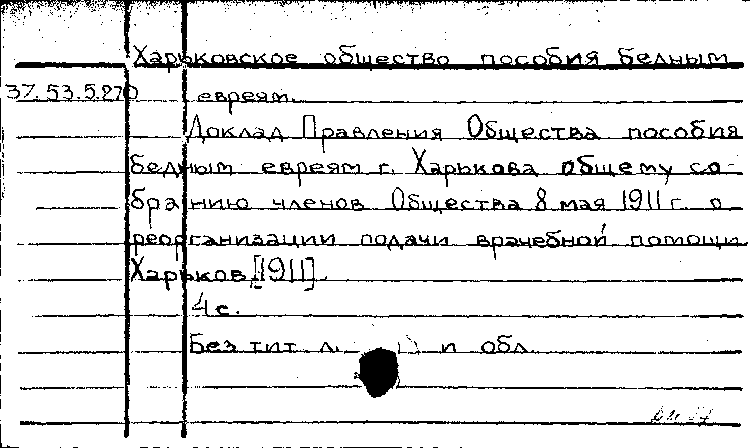 Харьковское общество пособия бедным
37.53.5.270 евреям.
Доклад Правления Общества пособия
бедным евреям г. Харькова общему со-
бранию членов Общества 8 мая 1911 г. о
реорганизации подачи врачебной помощи
Харьков, [1911].
4 с.
Без тит. л. и обл.